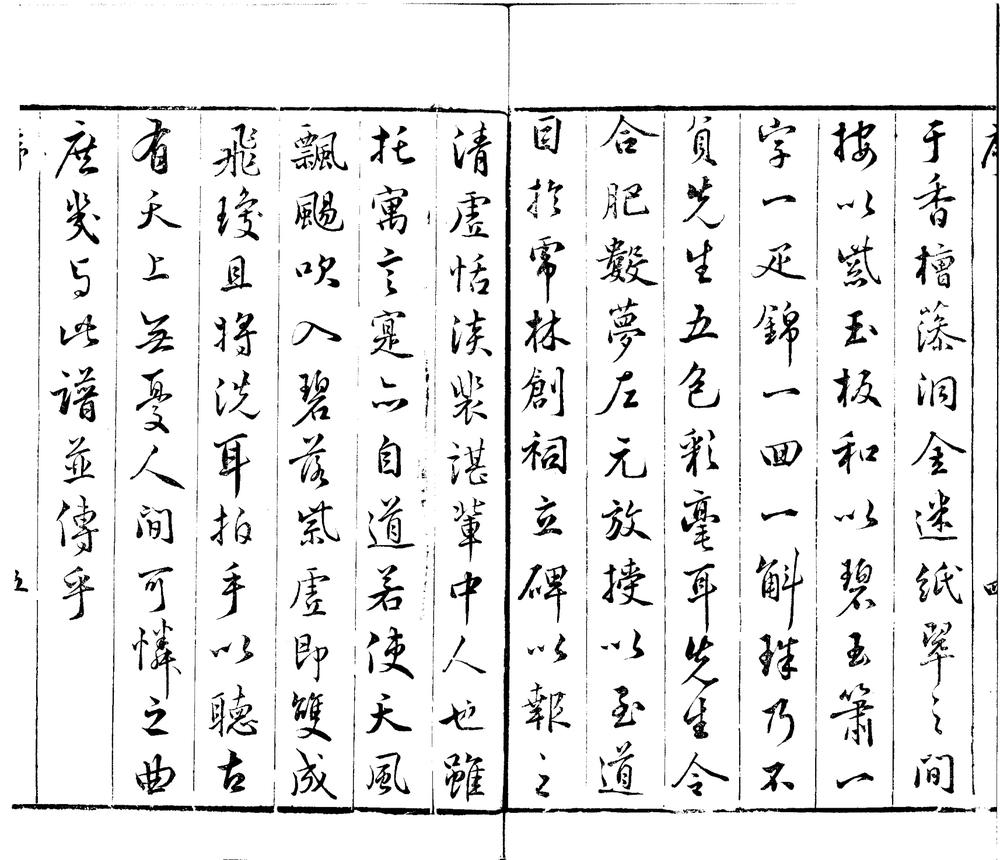 于香檀藻泂金迷紙翠之間
按以紫玉板和以碧玉簫一
字一疋錦一回一斛珠乃不
負先生五色彩毫耳先生令
合肥數夢左元放授以至道
因於霈林創祠立碑以報之
清虛恬淡裴諶輩中人也雖
托寓言寔亦自道若使天風
飄颺吹入碧落紫虛即雙成
飛瓊且將洗耳拍手以聽古
有天上無憂人間可憐之曲
庶幾与此譜並傳乎